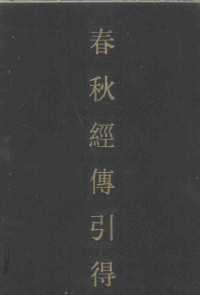 春秋經傳引得